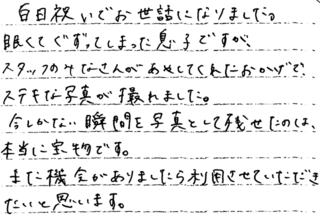 百日祝いでお世話になりました。
眠くてぐずってしまった息子ですが、
スタッフのみなさんがあやしてくれたおかげで、
ステキな写真が撮れました。
今しかない瞬間を写真として残せたのは、
本当に宝物です。
また機会がありましたら利用させていただき
たいと思います。